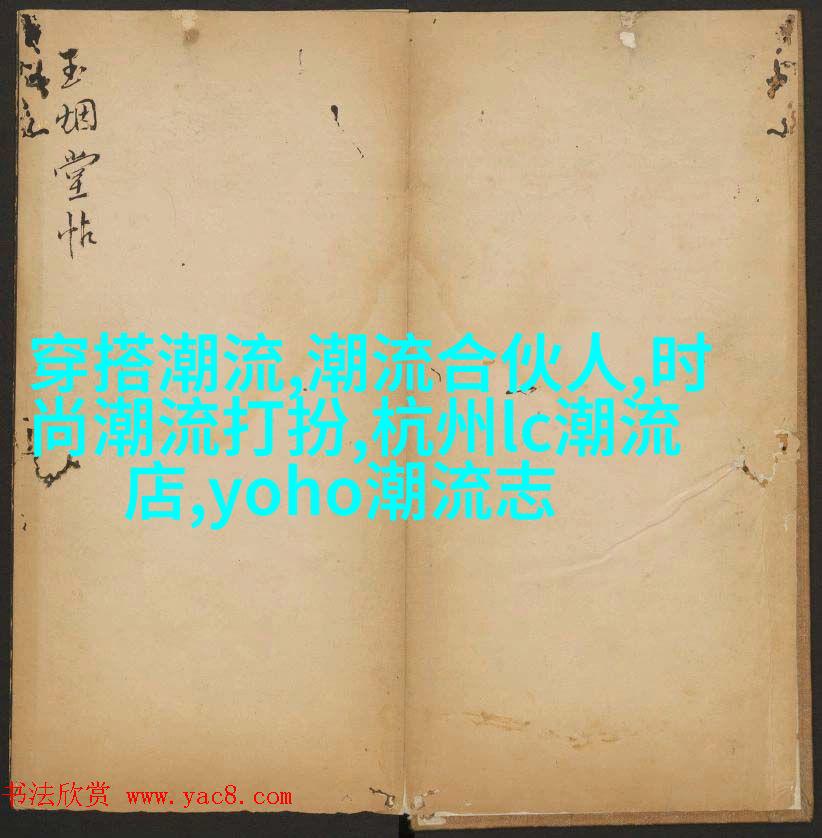 玉烟堂帖
穿搭潮流,潮流合伙人,时
尚潮流打扮,杭州lc潮流
店,yoho潮流志
书法欣赏 www.yac8.com